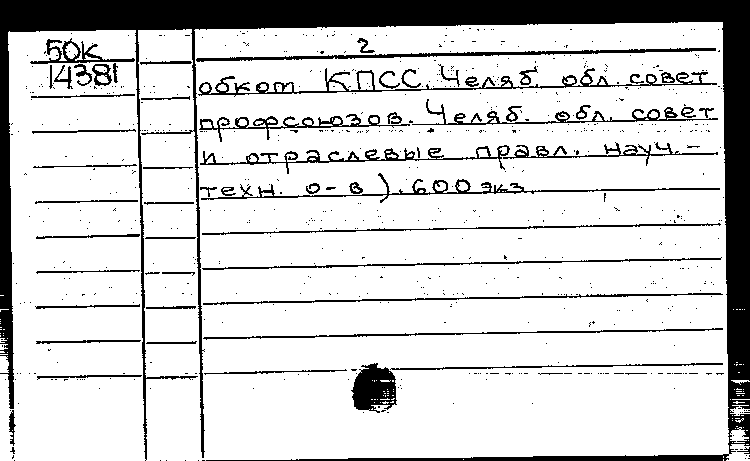 50к
14381
2
обком КПСС. Челяб. обл. совет
профсоюзов. Челяб. обл. совет
и отраслевые правл. науч.-
техн. о-в). 600 экз.